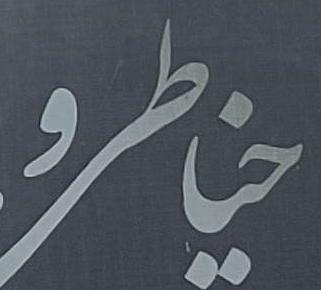 خیاطی و